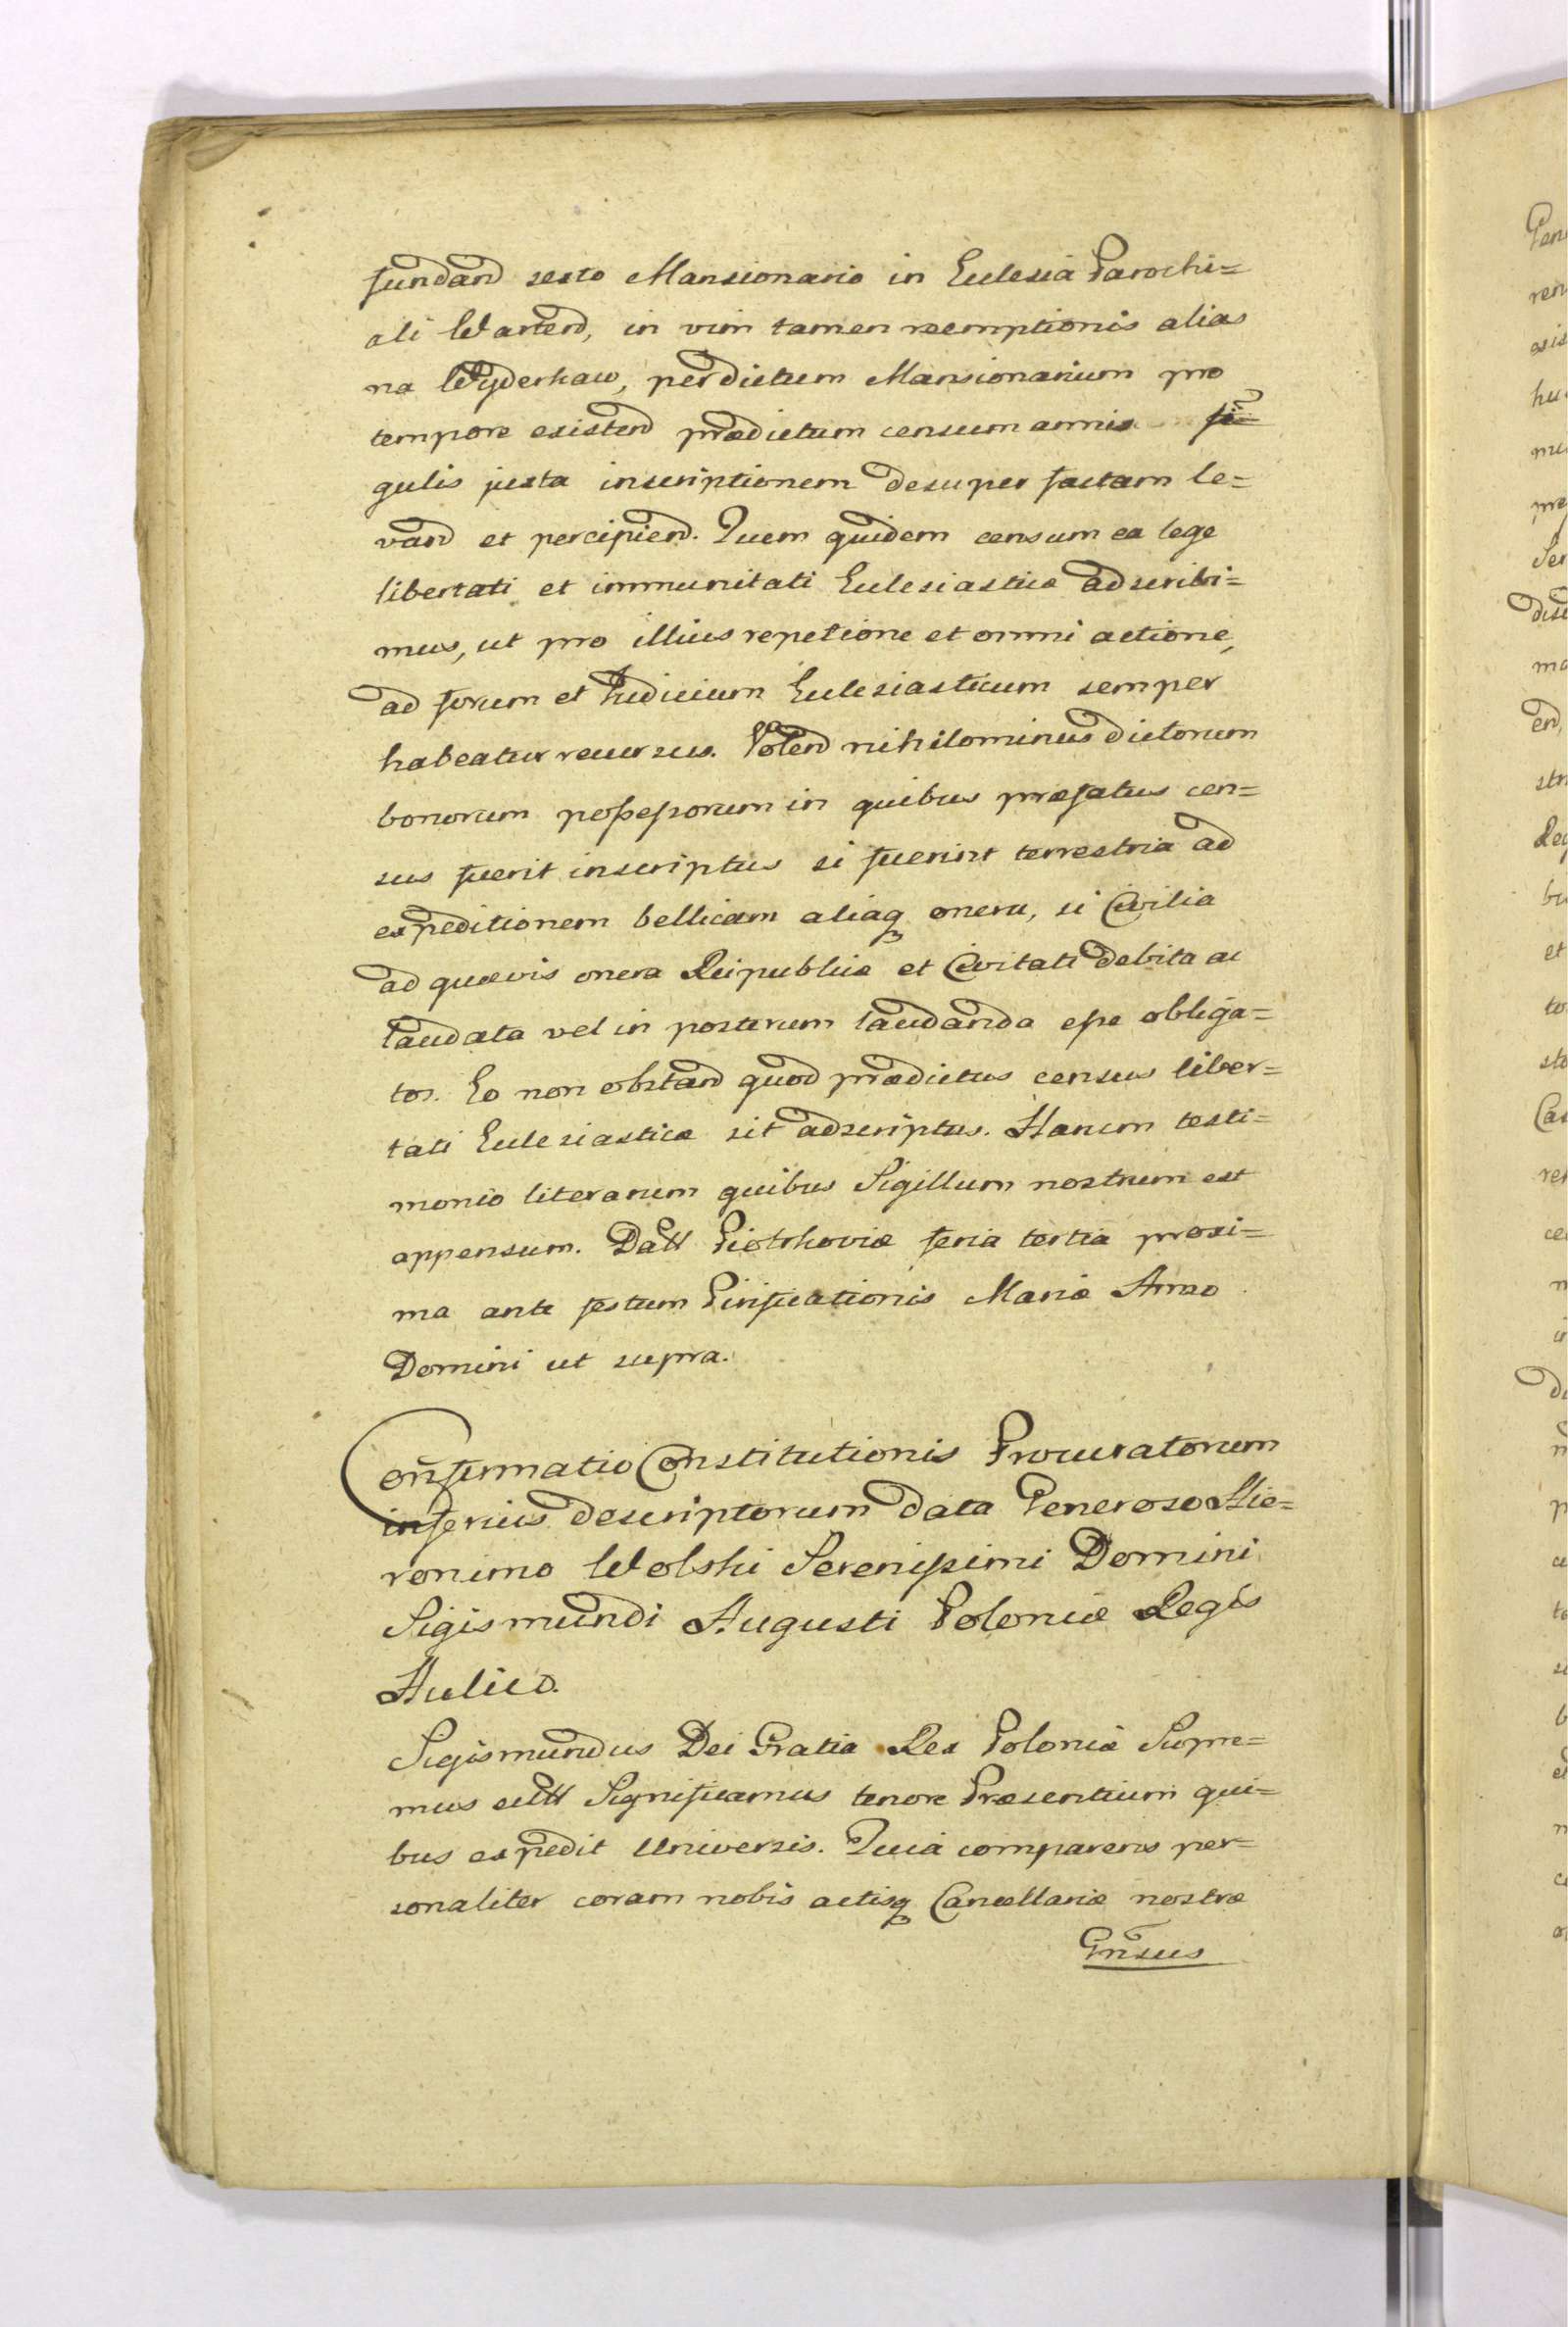 fundand sexto Mansionario in Eclesia Parochi=
ali Wartend, in vim tamen reemptionis alias
na Wyderkaw, perdictum Mansionarium pro
tempore existend prædictum censum annis sĩ=
gulis juxta inscriptionem desuper factam le=
vand et percipiend. Quem quidem censum ea lege
libertati et immunitati Eclesiasticæ adscribi=
mus, ut pro illius repetione et omni actione,
ad forum et Iudicium Eclesiasticum semper
habeatur recursus. Volend nihilominus dictorum
bonorum possessorum in quibus præfatus cen=
sus fuerit inscriptus si fuerint terrestria ad
expeditionem bellicam aliaq onera, si Civilia
ad quævis onera Reipublicæ et Civitati debita ac
laudata vel in posterum laudanda esse obliga=
tos. Eo non obstand quod prædictus census liber=
tati Eclesiasticæ sit adscriptus. Harum testi=
monio literarum quibus Sigillum nostrum est
appensum. Datt Piotrkoviæ feria tertia proxi=
ma ante festum Purificationis Mariæ Anno
Domini ut supra.
Confirmatio Constitutionis Procuratorum
inferius descriptorum data Generoso Hie=
ronimo Wolski Serenissimi Domini
Sigismundi Augusti Poloniæ Regis
Aulico.
Sigismundus Dei Gratia Rex Poloniæ Supre=
mus ettt Significamus tenore Præsentium qui=
bus expedit Universis. Quia comparens per=
sonaliter coram nobis actisq Cancellariæ nostræ
Gñsus